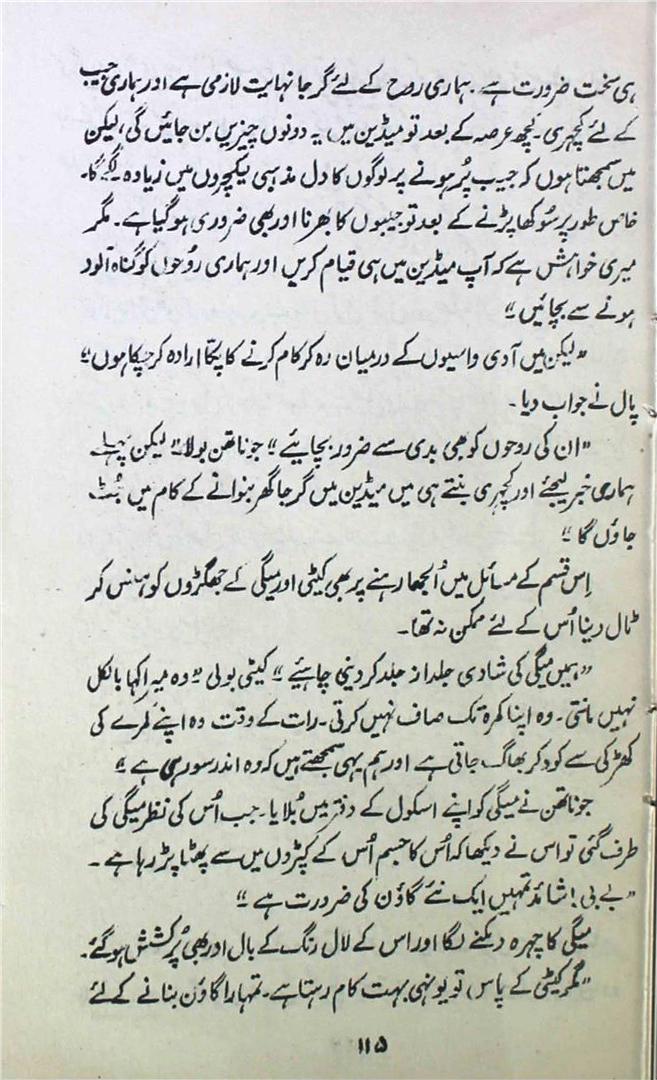 ہی سخت ضرورت ہے۔ ہماری روح کے لئے گرجا نہایت لازمی ہے اور ہماری جیب
کے لئے کچہری۔ کچھ عرصہ کے بعد تو میڈین میں یہ دونوں چیزیں بن جائیں گی، لیکن
میں سمجھتا ہوں کہ جیب پُر ہونے پر لوگوں کا دل مذہبی لیکچروں میں زیادہ لگے گا۔
خاص طور پر سُوکھا پڑنے کے بعد تو جیبوں کا بھرنا اور بھی ضروری ہو گیا ہے۔ مگر
میری خواہش ہے کہ آپ میڈین میں ہی قیام کریں اور ہماری رُوحوں کو گناہ آلود
ہونے سے بچائیں"
"لیکن میں آدی واسیوں کے درمیان رہ کر کام کرنے کا پکّا ارادہ کر چکا ہوں"
پال نے جواب دیا۔
"ان کی روحوں کو بھی بدی سے ضرور بچایئے" جوناتھن بولا "لیکن پہلے
ہماری خبر لیجئے اور کچہری بنتے ہی میں میڈین میں گرجا گھر بنوانے کے کام میں جُٹ
جاؤں گا"
اِس قسم کے مسائل میں اُلجھا رہنے پر بھی کیٹی اور میگی کے جھگڑوں کو ہنس کر
ٹال دینا اُس کے لئے ممکن نہ تھا۔
"ہمیں میگی کی شادی جلد از جلد کر دینی چاہیئے" کیٹی بولی "وہ میرا کہا بالکل
نہیں مانتی۔ وہ اپنا کمرہ تک صاف نہیں کرتی۔ رات کے وقت وہ اپنے کمرے کی
کھڑکی سے کود کر بھاگ جاتی ہے اور ہم یہی سمجھتے ہیں کہ وہ اندر سو رہی ہے"
جوناتھن نے میگی کو اپنے اسکول کے دفتر میں بُلایا۔ جب اُس کی نظر میگی کی
طرف گئی تو اس نے دیکھا کہ اُس کا جسم اُس کے کپڑوں میں سے پھٹا پڑ رہا ہے۔
"بے بی! شائد تمہیں ایک نئے گاؤن کی ضرورت ہے"
میگی کا چہرہ دمکنے لگا اور اس کے لال رنگ کے بال اور بھی پُر کشش ہو گئے۔
"مگر کیٹی کے پاس تو یونہی بہت کام رہتا ہے۔ تمہارا گاؤن بنانے کے لئے
۱۱۵